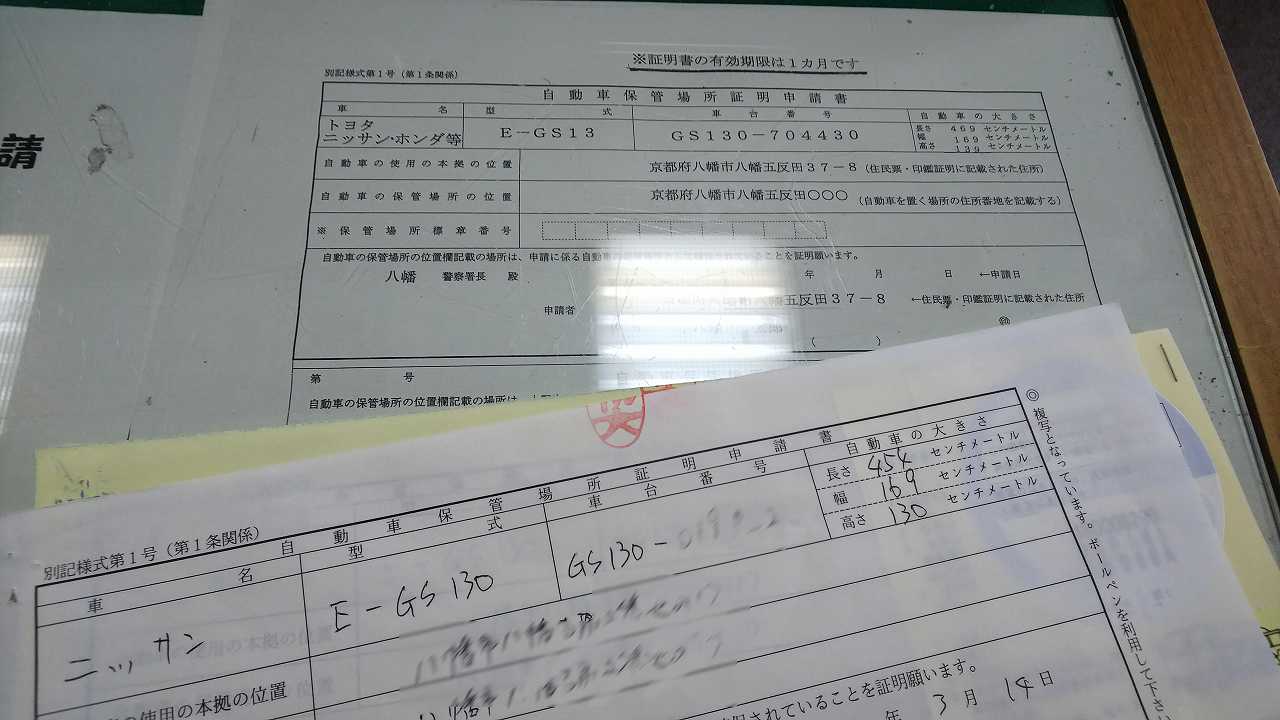 請
※証明書の有効期限は1カ月です
別記様式第1号(第1条関係)
自動車保管場所証明申請書
車名 型式 車台番号 自動車の大きさ
トヨタ
ニッサン・ホンダ等
E-GS13 GS130-704430
長さ 469 センチメートル
幅 169 センチメートル
高さ 139 センチメートル
自動車の使用の本拠の位置 京都府八幡市八幡五反田37-8(住民票・印鑑証明に記載された住所)
自動車の保管場所の位置 京都府八幡市八幡五反田〇〇〇(自動車を置く場所の住所番地を記載する)
※保管場所標章番号
自動車の保管場所の位置欄記載の場所は、申請に係る自動車の ることを証明願います。
八幡 警察署長 殿 年 月 日 ←申請日
申請者 八幡五反田37-8 ←住民票・印鑑証明に記載された住所
㊞
( )
第 号
自動車の保管場所の位置欄記載の場所は、
◎複写となっています。ボールペンを利用して下さい
別記様式第1号(第1条関係)
自動車保管場所証明申請書
車名 型式 車台番号 自動車の大きさ
ニッサン E-GS130 GS130-
長さ 454 センチメートル
幅 169 センチメートル
高さ 130 センチメートル
の使用の本拠の位置
されていることを証明願います。
年 3月 14日